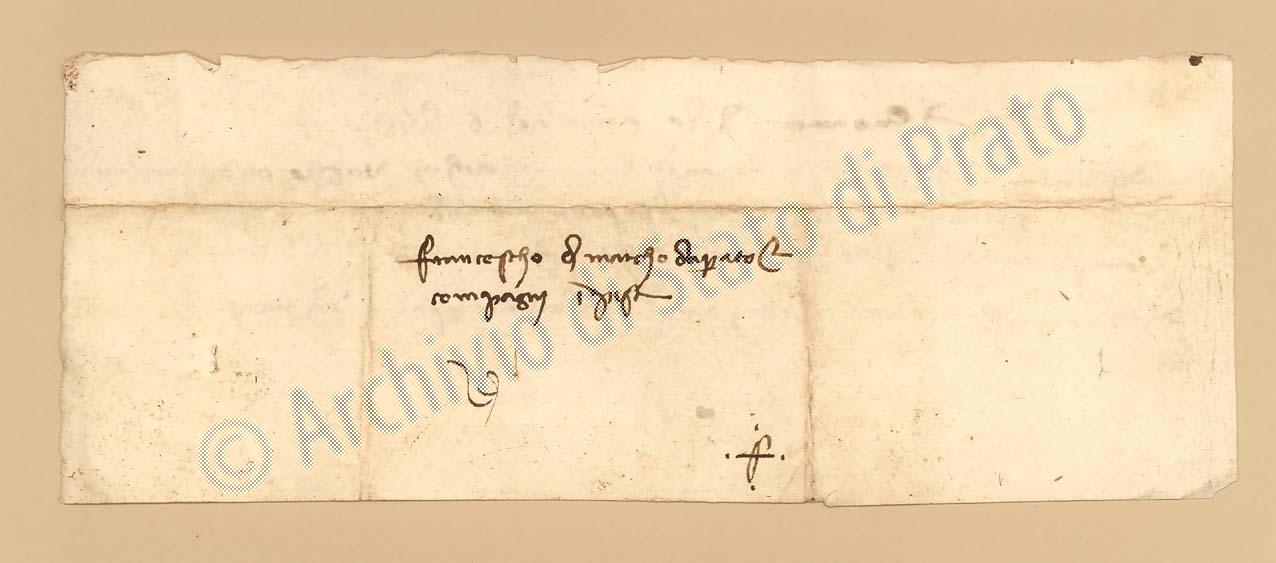 francescho di marcho da prato e
compagni i pisa
© Archivio di Stato di Prato